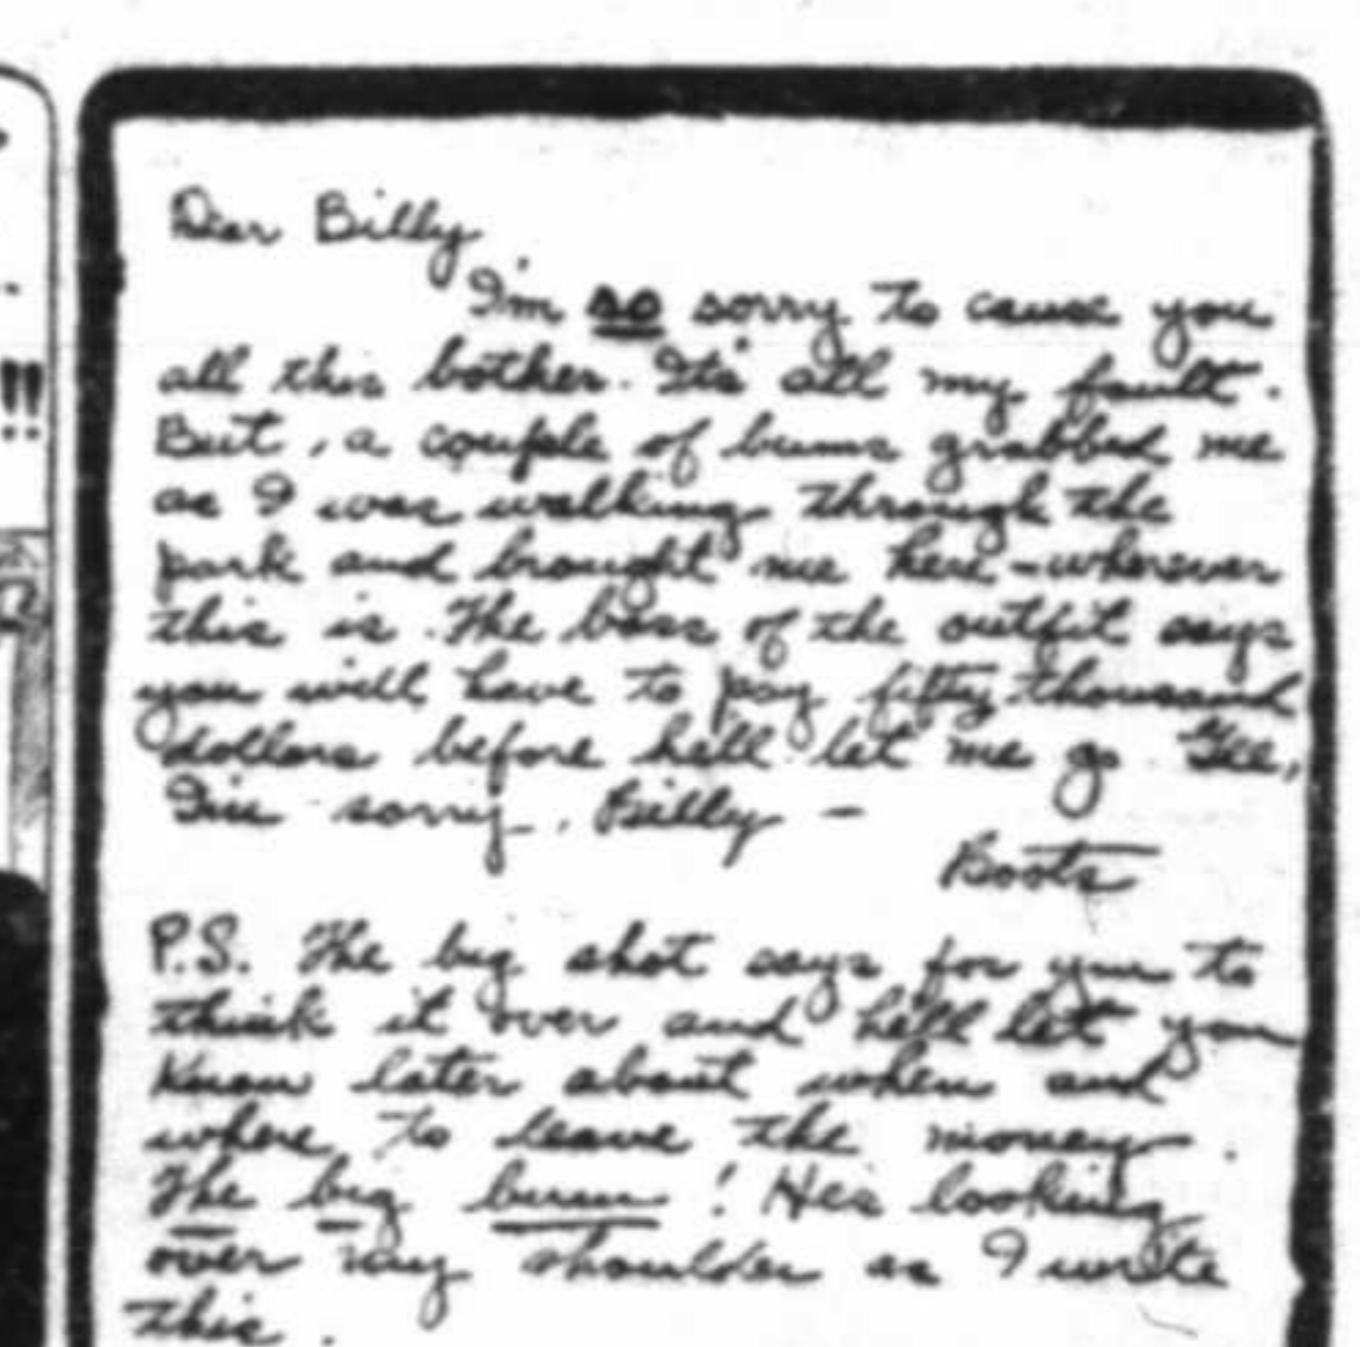 Dear Billy
I'm so sorry to cause you
all this bother. It's all my fault.
But, a couple of bums grabbed me
as I was walking through the
park and brought me here - wherever
this is. The boss of the outfit says
you will have to pay fifty thousand
dollars before he'll let me go. Gee,
I'm sorry, Billy -
Boots
P.S. The big shot says for you to
think it over and he'll let you
know later about when and
where to leave the money.
The big bum! He's looking
over my shoulder as I write
this.
!!